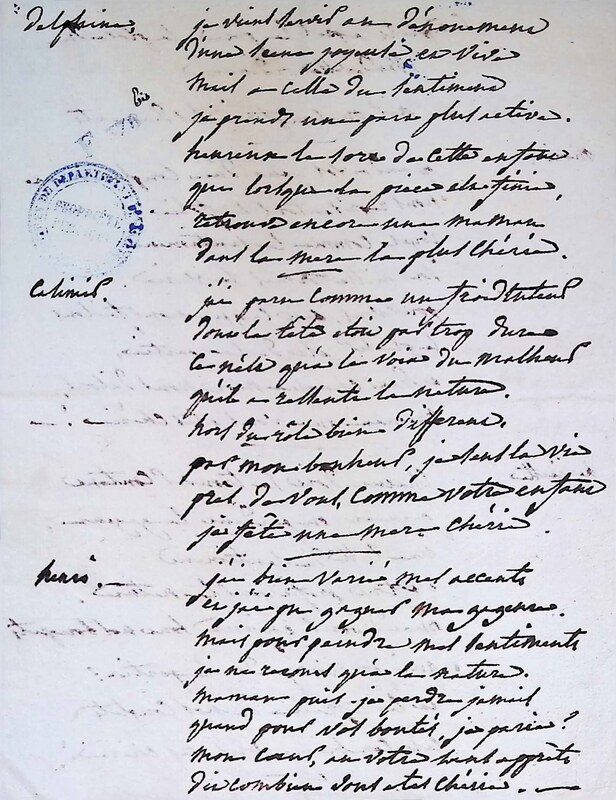 delphine,
je viens servir au dénouement
d'une scene joyeuse et vive
mais a celle du sentiment
je prends une part plus active.
heureux le sort de cette enfant
qui lorsque la piece est finie
retrouve encore une maman
dans la mere la plus chérie.
j'ai paru comme un froid tuteur
dont la tête étoit par trop dure
ce n'est qu'a la voix du malheur
qu'il a ressenti la nature.
hors du rôle bien different.
par mon bonheur, je sens la vie
près de vous, comme votre enfant
je fête une mere chérie.
henri. -
j'ai bien varié mes accents
et j'ai pu gagner ma gageure.
mais pour peindre mes sentiments
je ne recours qu'a la nature.
maman puis-je perdre jamais
quand pour vos bontés, je parie?
mon coeur, au votre sans apprêts
dit combien vous etes chérie. -